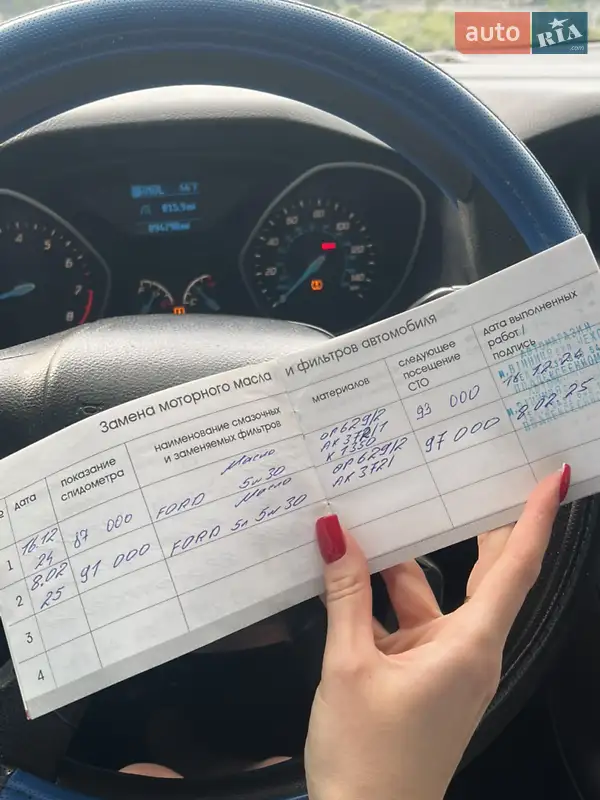 auto RIA.com
4 5 6 7 8
20 40 60 80 100 120 140
Замена моторного масла и фильтров автомобиля
№
дата
показание спидометра
наименование смазочных и заменяемых фильтров
материалов
следующее посещение СТО
дата выполненных работ/ подпись
1
16.12 24
87 000
Масло FORD 5w30
OP 629/2
AK 372/1
K 1350
93 000
16.12.24
2
8.02 25
91 000
Масло FORD 5л 5w30
OP 629/2
AK 372/1
97 000
8.02.25
3
4